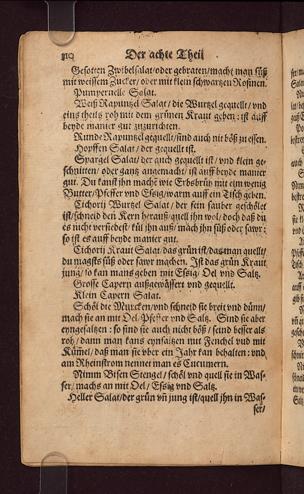 Der achte Theil
Gesotten Zwibelsalat/oder gebraten/macht man süß
mit weissem Zucker/ oder mit klein schwartzen Rosinen.
Pumpernelle Salat.
Weiß Rapuntzel Salat/die Wurtzel gequellt/vnd
eins theils roh mit dem grünen Kraut geben: ist auff
beyde manier gut zuzurichten.
Runde Rapuntzel gequellt/sind auch nit böß zu essen.
Hopffen Salat/der gequellt ist.
Spargel Salat/der auch gequellt ist/vnd klein ge-
schnitten/oder gantz angemacht/ist auff beyde manier
gut. Du kanst ihn machē wie Erbsbrüh mit eim wenig
Butter/Pfeffer vnd Essig/warm auff ein Tisch geben.
Cichorij Wurtzel Salat/der fein sauber geschölet
ist/schneid den Kern herauß/quell ihn wol/doch daß du
es nicht versiedest/kül ihn auß/mach ihn süß oder sawr:
so ist es auff beyde manier gut.
Cichorij Kraut Salat/das grün ist/das man quellt/
du magsts süß oder sawr machen. Ist das grün Kraut
jung/so kan mans geben mit Essig/Oel vnd Saltz.
Grosse Capern außgewässert vnd gequellt.
Klein Capern Salat.
Schöl die Murcken/vnd schneid sie breit vnd dünn/
mach sie an mit Oel/Pfeffer vnd Saltz. Sind sie aber
eyngesaltzen: so sind sie auch nicht böß/seind besser als
roh/dann man kans eynsaltzen mit Fenchel vnd mit
Kümel/daß man sie vber ein Jahr kan behalten: vnd
am Rheinstrom nennet man es Cucumern.
Nimm Bisen Stengel/schöl vnd quell sie in Was-
ser/machs an mit Oel/Essig vnd Saltz.
Heller Salat/der grün vñ jung ist/quell ihn in Was-
ser/